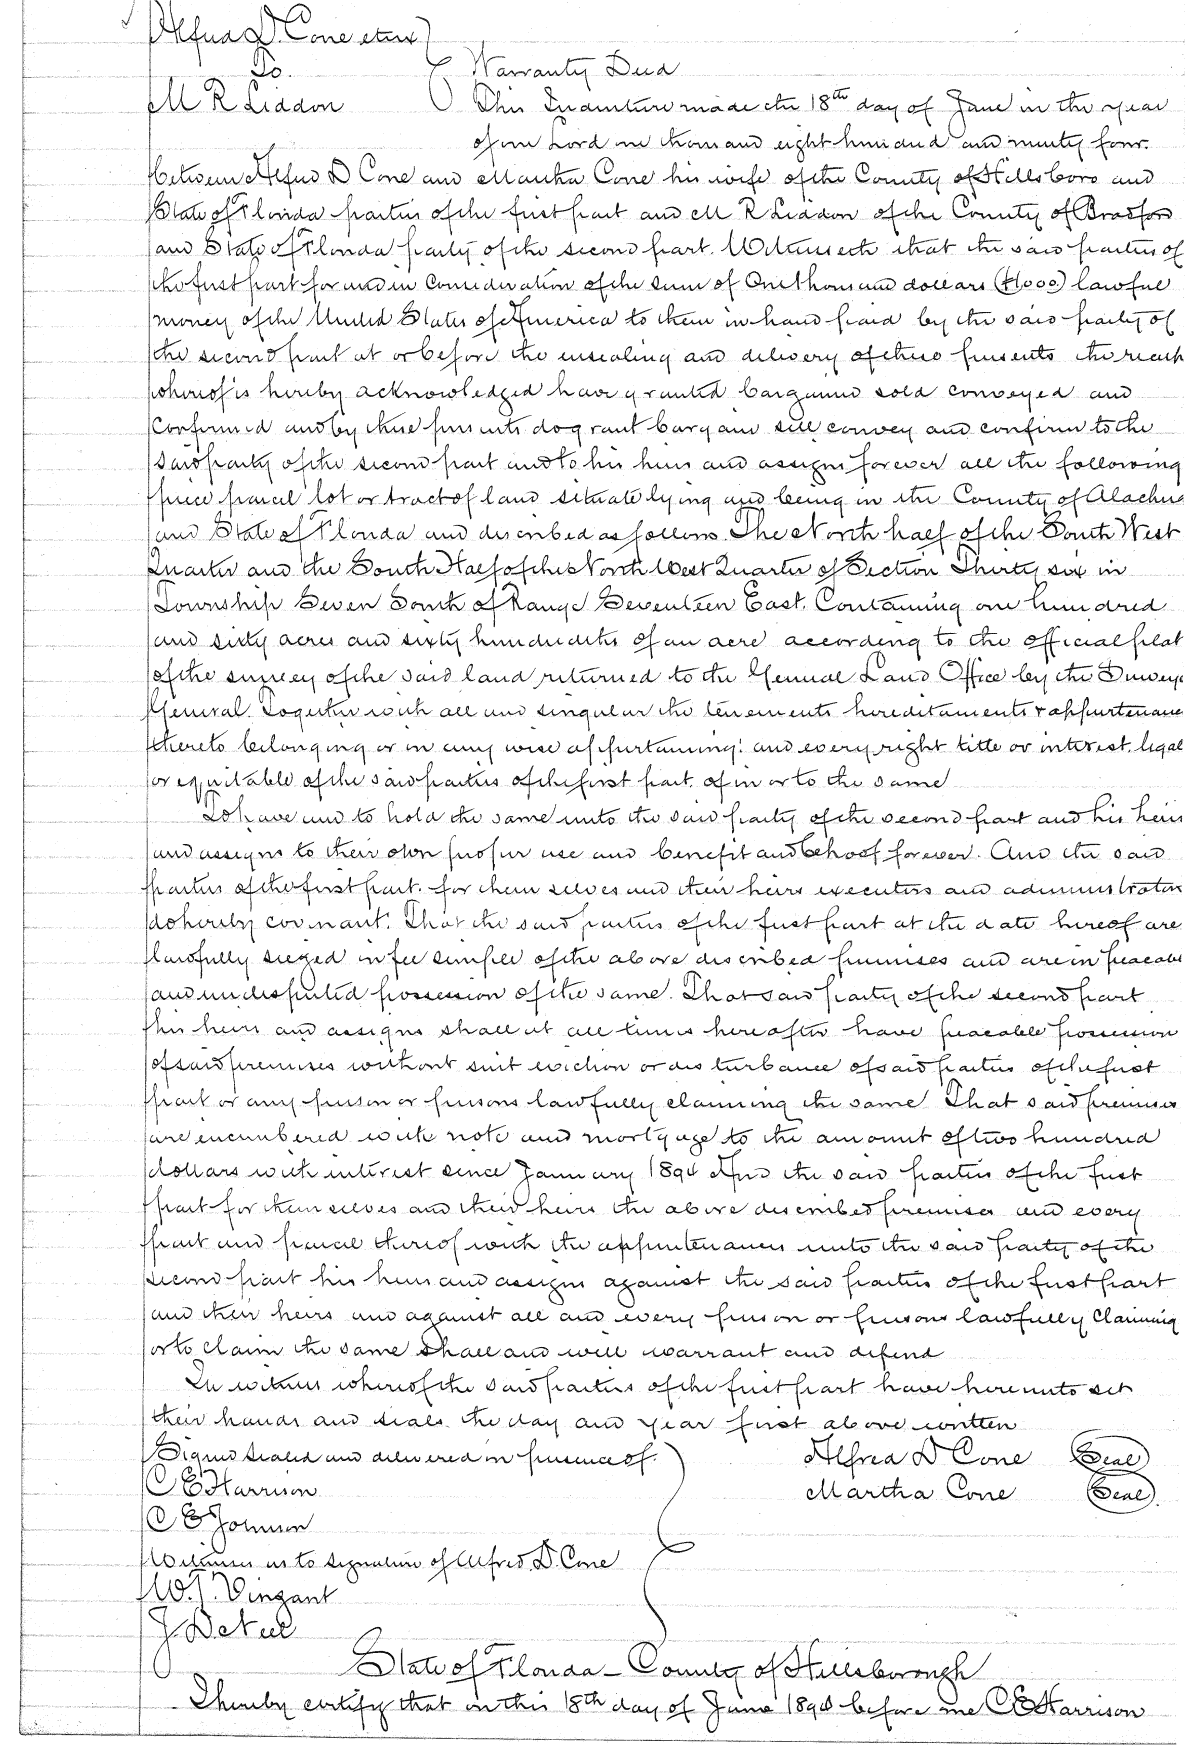 Alfred D. Cone etux
To. Warranty Deed
M R Liddon This Indenture made the 18th day of June in the year
of our Lord one thousand eight hundred and ninety four.
between Alfred D Cone and Martha Cone his wife of the County of Hillsboro and
State of Florida parties of the first part and M R Liddon of the County of Bradford
and State of Florida party of the second part. Witnesseth that the said parties of
the first part for and in consideration of the sum of One thousand dollars ($1000) lawful
money of the United States of America to them in hand paid by the said party of
the second part at or before the ensealing and delivery of these presents the
whereof is hereby acknowledged have granted bargained sold conveyed and
confirmed and by these presents do grant bargain sell convey and confirm to the
said party of the second part and to his heirs and assigns forever all the following
piece parcel lot or tract of land situate lying and being in the County of Alachua
and State of Florida and described as follows. The North half of the South West
Quarter and the South Half of the North West Quarter of Section Thirty six in
Township Seven South of Range Seventeen East. Containing one hundred
and sixty acres and sixty hundredths of an acre according to the official plat
of the survey of the said land returned to the General Land Office by the Surveyor
General. Together with all and singular the tenements hereditaments & appurtenances
thereto belonging or in any wise appurtaining: and every right title or interest, legal
or equitable of the said parties of the first part, of in or to the same
To have and to hold the same unto the said party of the second part and his heirs
and assigns to their own proper use and benefit and behoof forever. And the said
parties of the first part. for them selves and their heirs executors and administrators
do hereby covenant. That the said parties of the first part at the date hereof are
lawfully siezed in fee simple of the above described premises and are in peacable
and undisputed possession of the same. That said party of the second part
his heirs and assigns shall at all times hereafter have peacable possession
of said premises without suit eviction or disturbance of said parties of the first
part or any person or persons lawfully claiming the same That said premises
are encumbered with note and mortgage to the amount of two hundred
dollars with interest since January 1894 And the said parties of the first
part for them selves and their heirs the above described premises and every
part and parcel thereof with the appurtenances unto the said party of the
second part his heirs and assigns against the said parties of the first part
and their heirs and against all and every person or persons lawfully claiming
or to claim the same shall and will warrant and defend
In witness whereof the said parties of the first part have hereunto set
their hands and seals the day and year first above written
Signed sealed and delivered in presence of. Alfred D Cone (Seal)
C E Harrison Martha Cone (Seal)
C E Johnson
Witnesses as to signature of Alfred. D. Cone
W. J. Vinzant
J. DeNeel
State of Florida – County of Hillsborough
I hereby certify that on this 18th day of June 1894 before me C E Harrison